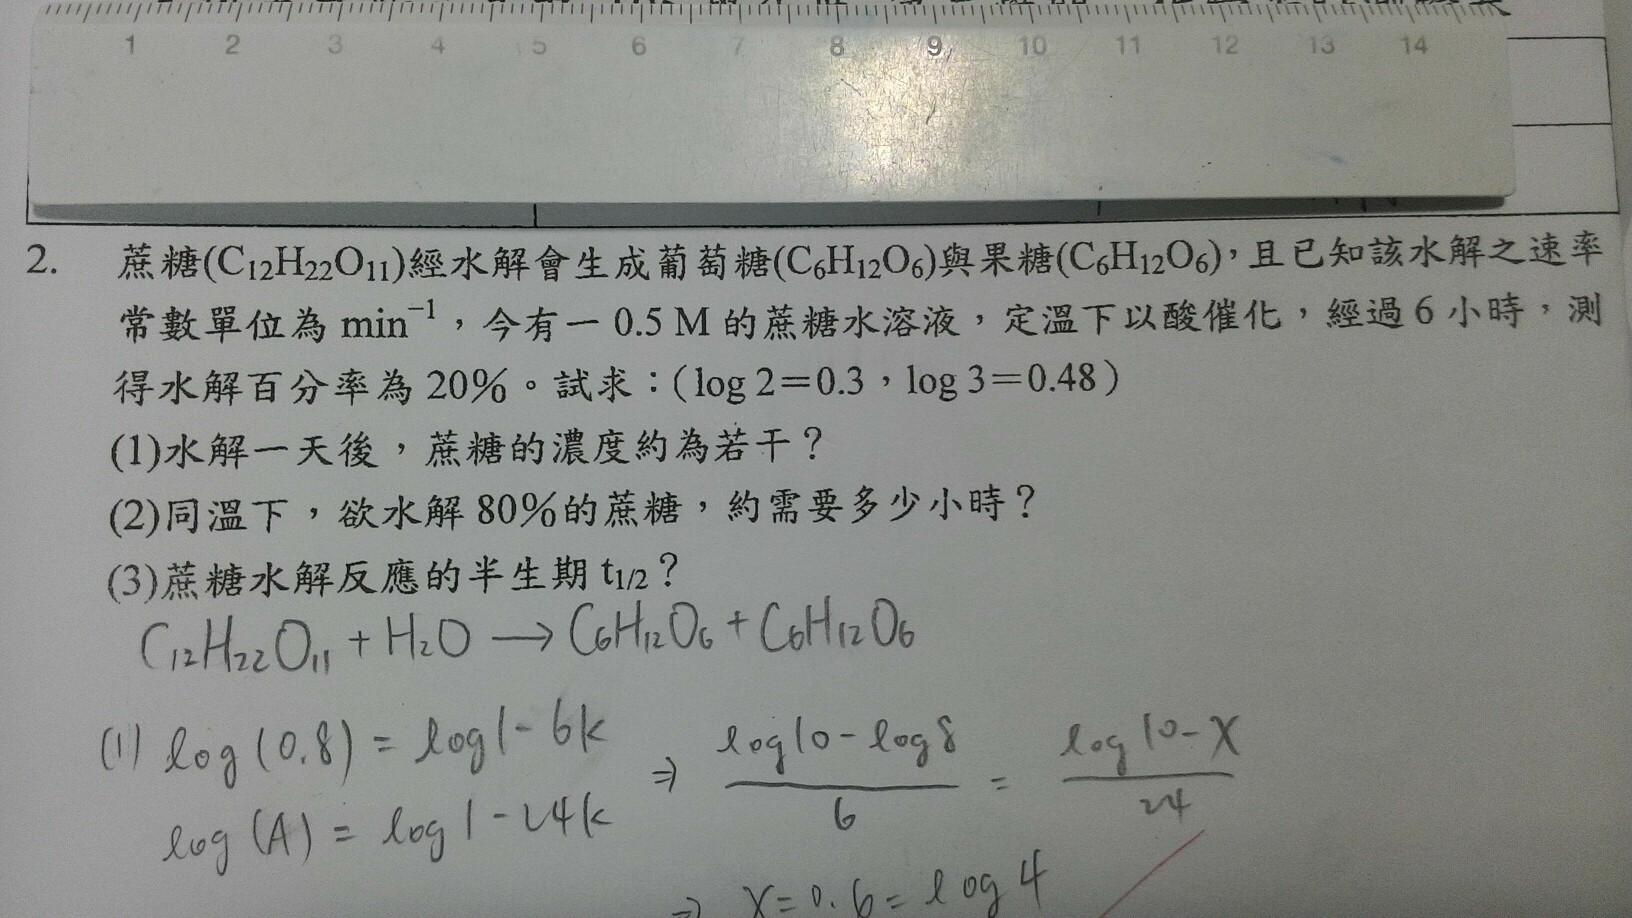 1 2 3 4 5 6 7 8 9 10 11 12 13 14
2. 蔗糖(C₁₂H₂₂O₁₁)經水解會生成葡萄糖(C₆H₁₂O₆)與果糖(C₆H₁₂O₆)，且已知該水解之速率
常數單位為 min⁻¹，今有一 0.5 M 的蔗糖水溶液，定溫下以酸催化，經過 6 小時，測
得水解百分率為 20%。試求：(log 2＝0.3，log 3＝0.48)
(1)水解一天後，蔗糖的濃度約為若干？
(2)同溫下，欲水解 80%的蔗糖，約需要多少小時？
(3)蔗糖水解反應的半生期 t₁/₂？
C₁₂H₂₂O₁₁ + H₂O → C₆H₁₂O₆ + C₆H₁₂O₆
(1) log(0.8) = log1 - 6k
log(A) = log1 - 24k
⇒ (log10 - log8)/6 = (log10 - X)/24
⇒ X = 0.6 = log4